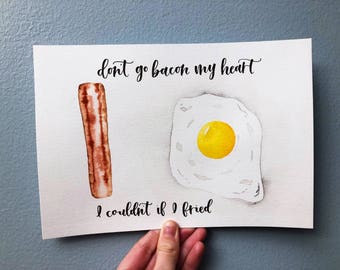 don't go bacon my heart
I couldn't if I fried